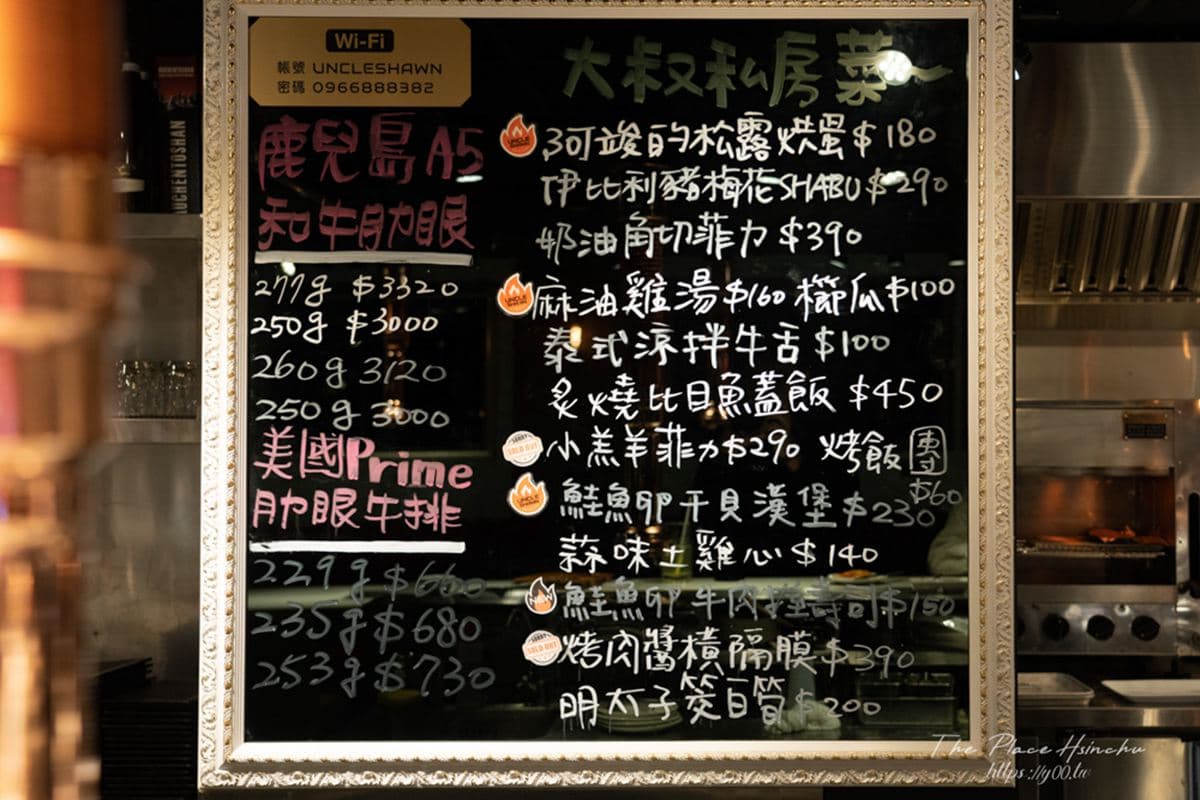 Wi-Fi
帳號 UNCLESHAWN
密碼 0966888382
鹿兒島 A5
和牛肋眼
277g $3320
250g $3000
260g 3120
250g 3000
美國Prime
肋眼牛排
229g $660
235g $680
253g $730
大叔私房菜
阿竣的松露烘蛋 $180
伊比利豬梅花SHABU $290
奶油角切菲力 $390
麻油雞湯 $160 櫛瓜 $100
泰式涼拌牛舌 $100
炙燒比目魚蓋飯 $450
小羔羊菲力 $290 烤飯
$60
鮭魚卵干貝漢堡 $230
蒜味土雞心 $140
鮭魚卵牛肉握壽司 $150
烤肉醬橫隔膜 $390
明太子筊白筍 $200
SOLD OUT
NEW
SOLD OUT
AUCHENTOSHAN
The Place Hsinchu
https://y00.tw